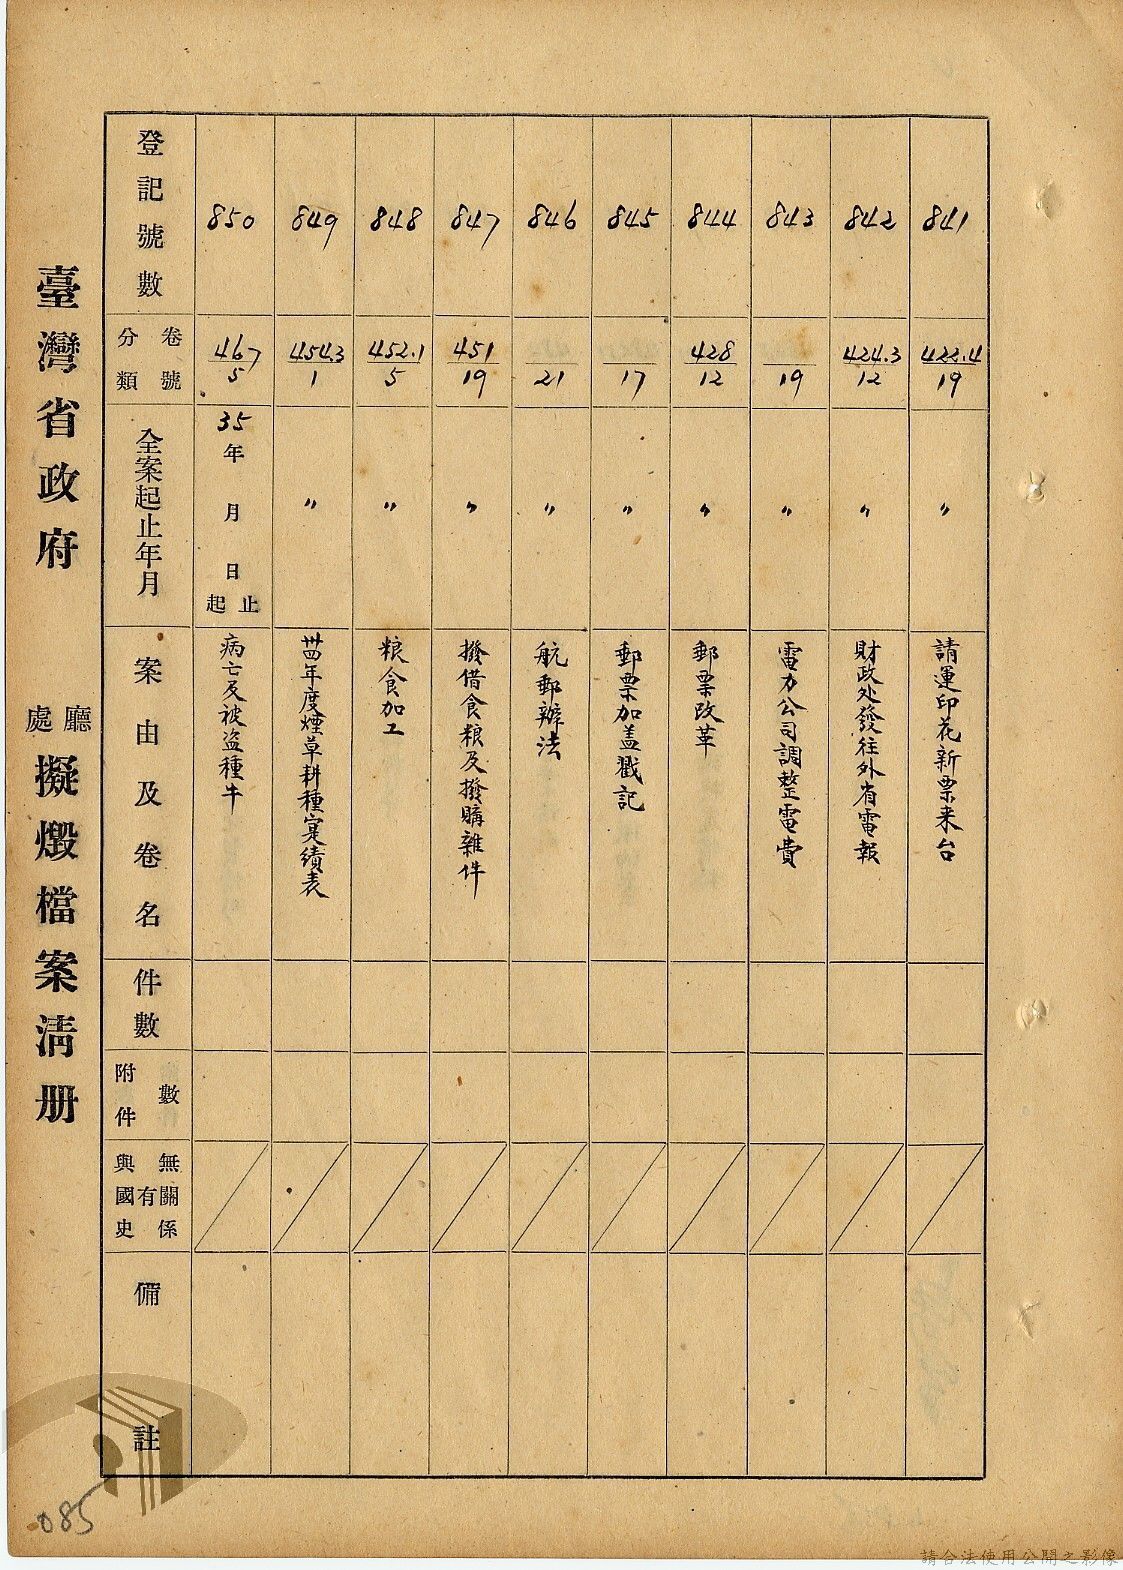 臺灣省政府 廳處 擬燬檔案清册
登記號數
卷號 分類
全案起止年月
案由及卷名
件數
附件數
與國史有無關係
備註
850
467/5
35年 月 日 起 止
病亡及被盗種牛
849
454.3/1
〃
卅四年度煙草耕種寔績表
848
452.1/5
〃
粮食加工
847
451/19
〃
撥借食粮及撥購雜件
846
21
〃
航郵辦法
845
17
〃
郵票加盖戳記
844
428/12
〃
郵票改革
843
19
〃
電力公司調整電費
842
424.3/12
〃
財政处發往外省電報
841
422.4/19
〃
請運印花新票来台
085
請合法使用公開之影像